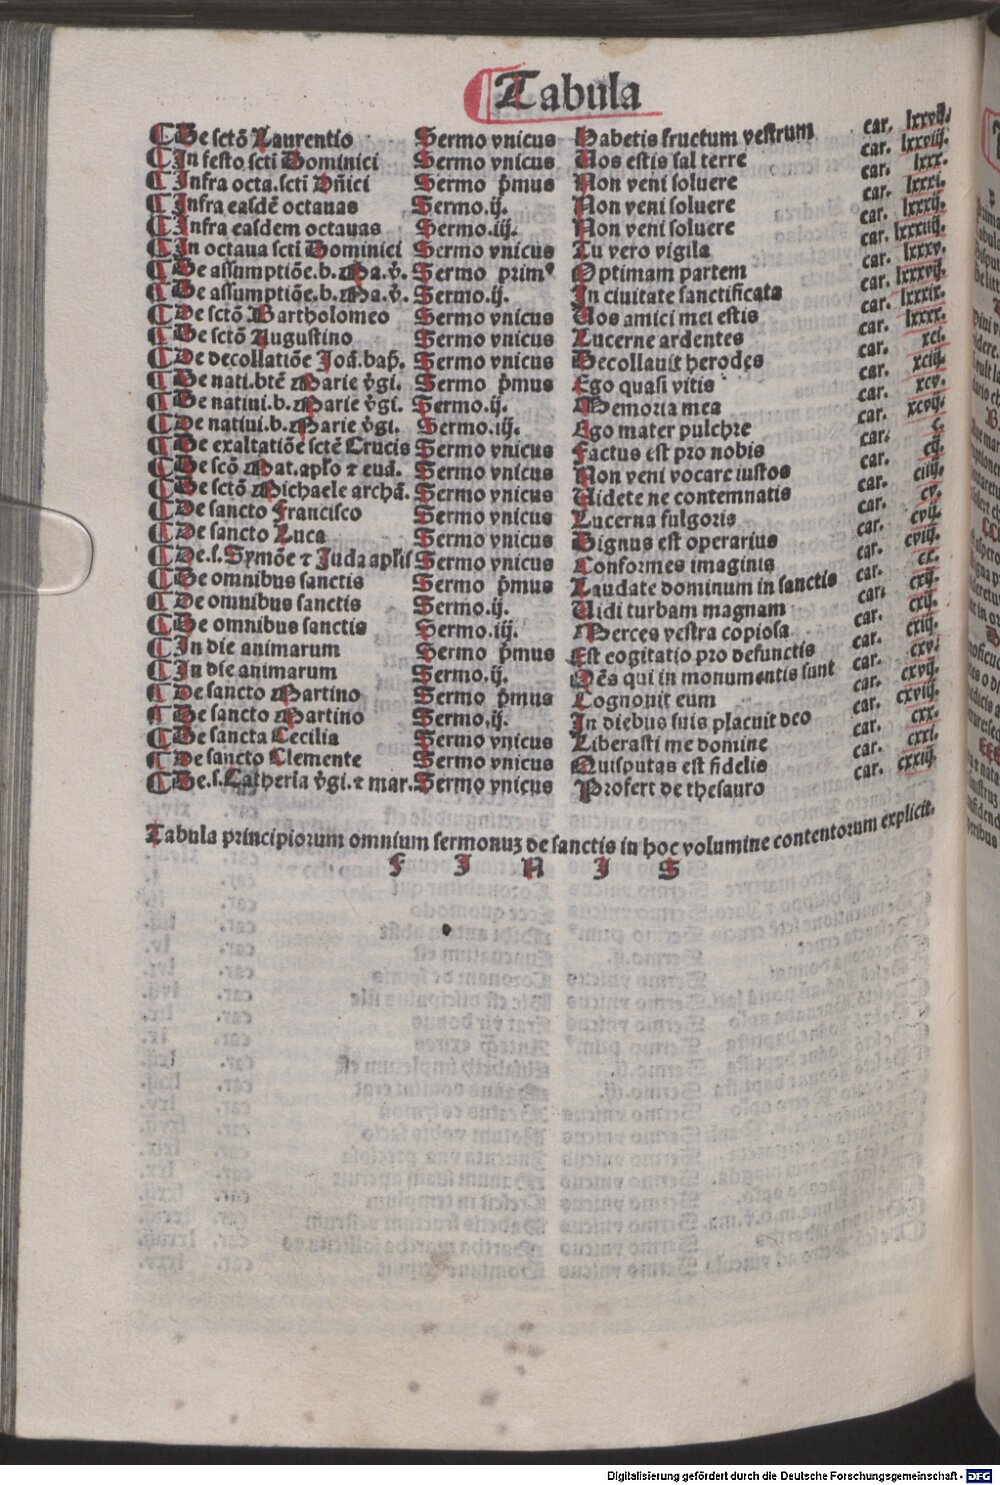 Tabula
¶ De sctõ Laurentio Sermo vnicus Habetis fructum vestrum car. lxxvij.
¶ In festo scti Dominici Sermo vnicus Uos estis sal terre car. lxxviij.
¶ Infra octa.scti Dñici Sermo p̃mus Non veni soluere car. lxxx.
¶ Infra easdẽ octauas Sermo.ij. Non veni soluere car. lxxxi.
¶ Infra easdem octauas Sermo.iij. Non veni soluere car. lxxxij.
¶ In octaua scti Dominici Sermo vnicus Tu vero vigila car. lxxxiij.
¶ De assumptiõe.b.Ma.v̄. Sermo primꝰ Optimam partem car. lxxxv.
¶ De assumptiõe.b.Ma.v̄. Sermo.ij. In ciuitate sanctificata car. lxxxvij.
¶ De sctõ Bartholomeo Sermo vnicus Uos amici mei estis car. lxxxix.
¶ De sctõ Augustino Sermo vnicus Lucerne ardentes car. lxxxx.
¶ De decollatiõe Joã.bap̃. Sermo vnicus Decollauit herodes car. xci.
¶ De nati.btẽ Marie v̄gi. Sermo p̃mus Ego quasi vitis car. xciij.
¶ De natiui.b.Marie v̄gi. Sermo.ij. Memoria mea car. xcv.
¶ De natiui.b.Marie v̄gi. Sermo.iij. Ego mater pulchre car. xcvij.
¶ De exaltatiõe sctẽ Crucis Sermo vnicus Factus est pro nobis car. c.
¶ De scõ Mat.apl̃o ⁊ euã. Sermo vnicus Non veni vocare iustos car. cij.
¶ De sctõ Michaele archã. Sermo vnicus Uidete ne contemnatis car. ciiij.
¶ De sancto Francisco Sermo vnicus Lucerna fulgoris car. cv.
¶ De sancto Luca Sermo vnicus Dignus est operarius car. cvij.
¶ De.s.Symõe ⁊ Juda apl̃is Sermo vnicus Conformes imaginis car. cviij.
¶ De omnibus sanctis Sermo p̃mus Laudate dominum in sanctis car. cx.
¶ De omnibus sanctis Sermo.ij. Uidi turbam magnam car. cxij.
¶ De omnibus sanctis Sermo.iij. Merces vestra copiosa car. cxij.
¶ In die animarum Sermo p̃mus Est cogitatio pro defunctis car. cxiij.
¶ In die animarum Sermo.ij. Oẽs qui in monumentis sunt car. cxv.
¶ De sancto Martino Sermo p̃mus Cognouit eum car. cxvij.
¶ De sancto Martino Sermo.ij. In diebus suis placuit deo car. cxviij.
¶ De sancta Cecilia Sermo vnicus Liberasti me domine car. cxx.
¶ De sancto Clemente Sermo vnicus Quisputas est fidelis car. cxxi.
¶ De.s.Catheria v̄gi.⁊ mar. Sermo vnicus Profert de thesauro car. cxxiij.
Tabula principiorum omnium sermonuz de sanctis in hoc volumine contentorum explicit.
F I N I S
Digitalisierung gefördert durch die Deutsche Forschungsgemeinschaft - DFG